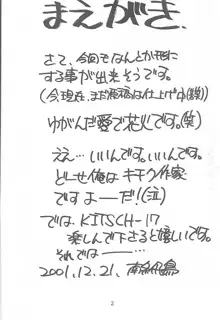 まえがき.
さて、今回もなんとか形に
する事が出来そうです。
(今現在、まだ原稿は仕上げ中(鬱))
ゆがんだ愛で花火です。(笑)
ええ…いいんです。いいんです。
どーせ俺はキチク作家
ですよーだ!(泣)
では、KITSCH-17
楽しんで下さると嬉しいです。
それではーーー
2001.12.21.
2